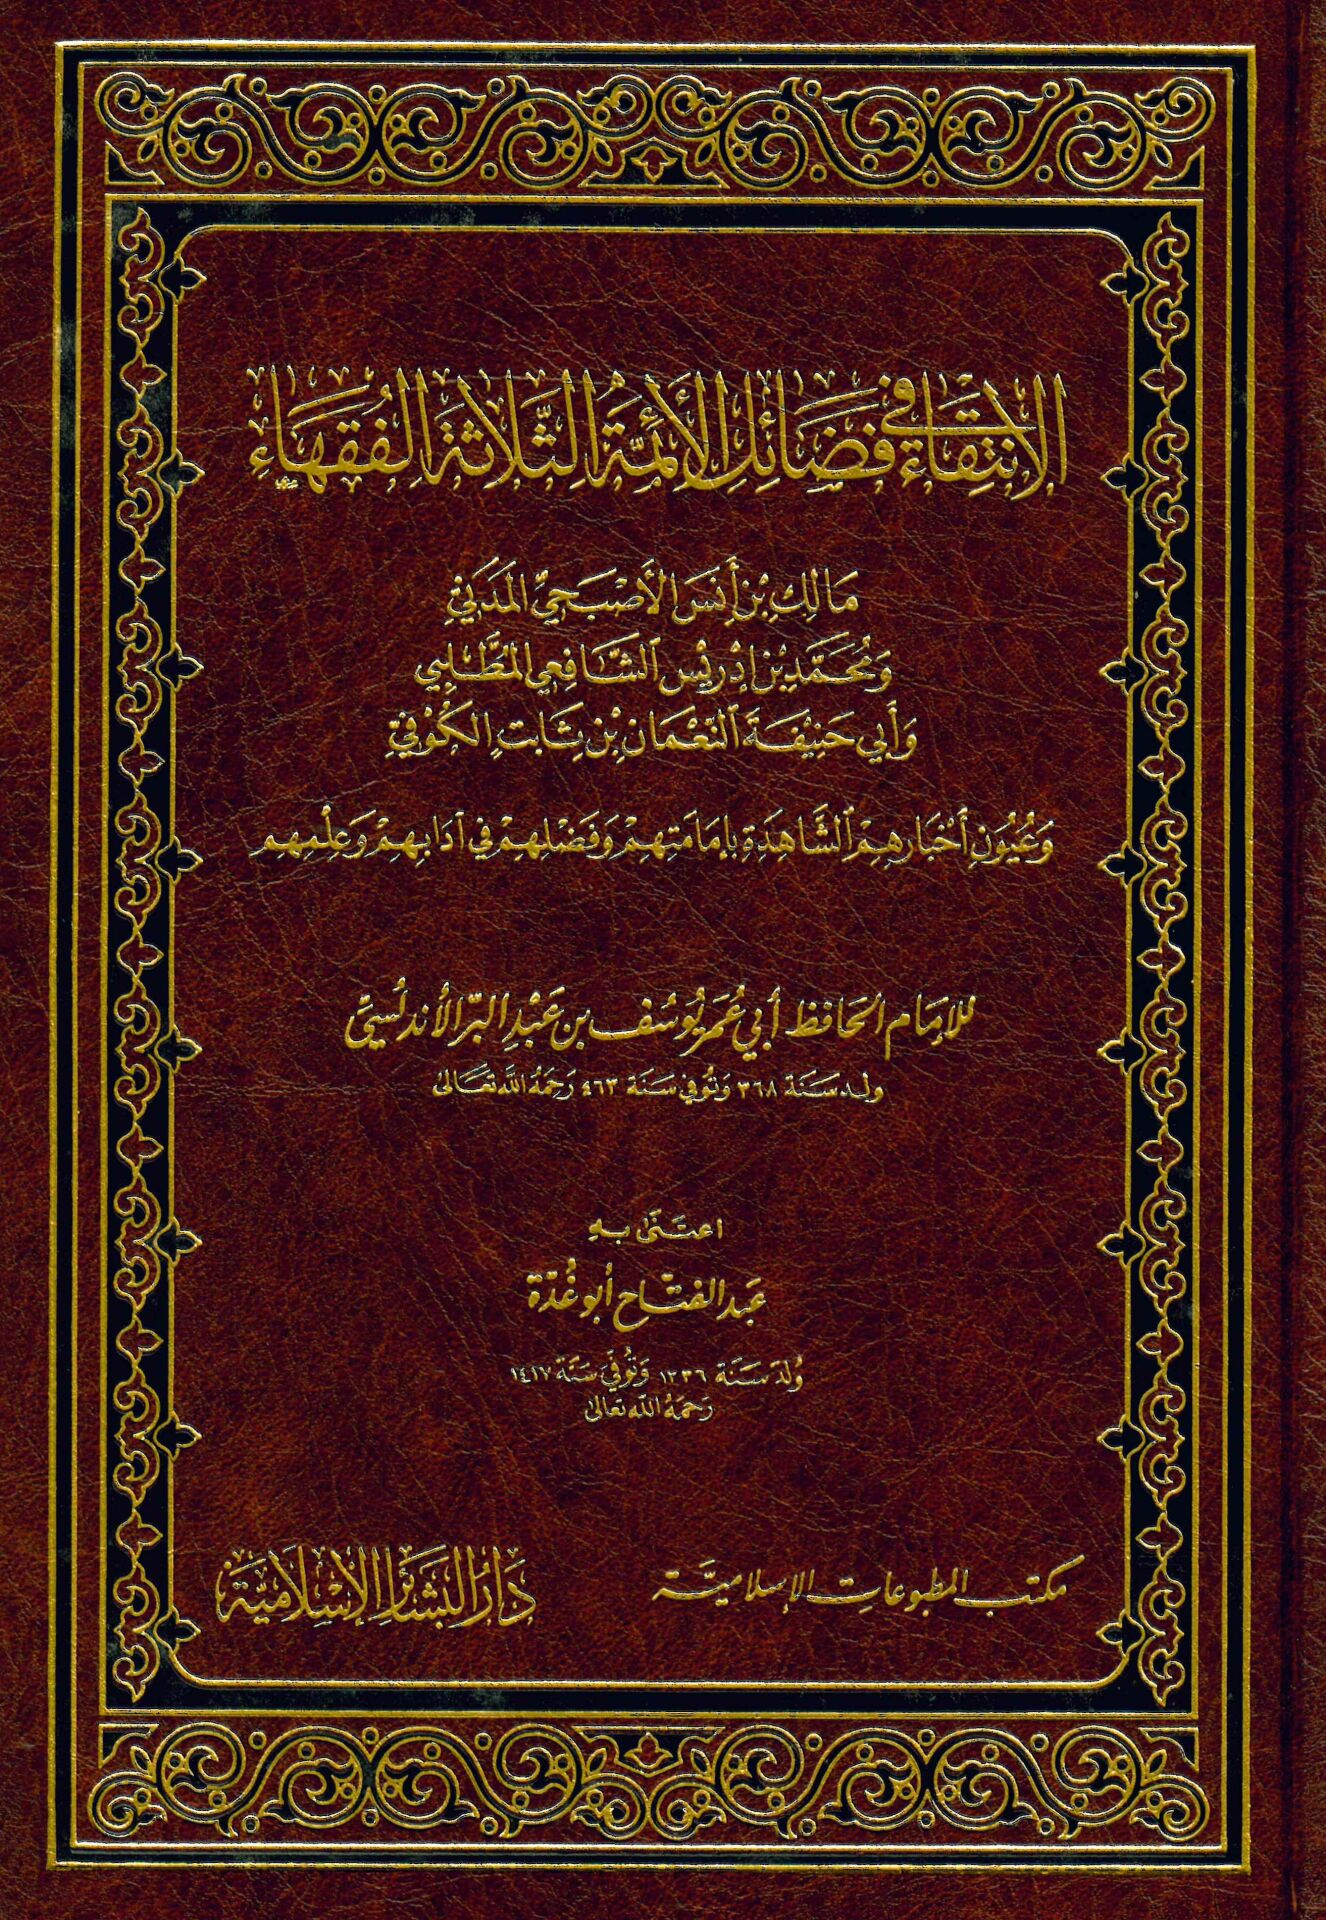 الانتقاء في فضائل الأئمة الثلاثة الفقهاء
مالك بن أنس الأصبحي المدني
ومحمد بن إدريس الشافعي المطلبي
وأبي حنيفة النعمان بن ثابت الكوفي
وعيون أخبارهم الشاهدة بإمامتهم وفضلهم في آدابهم وعلمهم
للإمام الحافظ أبي عمر يوسف بن عبد البر الأندلسي
ولد سنة ٣٦٨ وتوفي سنة ٤٦٣ رحمه الله تعالى
اعتنى به
عبد الفتاح أبو غدة
ولد سنة ١٣٣٦ وتوفي سنة ١٤١٧
رحمه الله تعالى
مكتب المطبوعات الإسلامية
دار البشائر الإسلامية